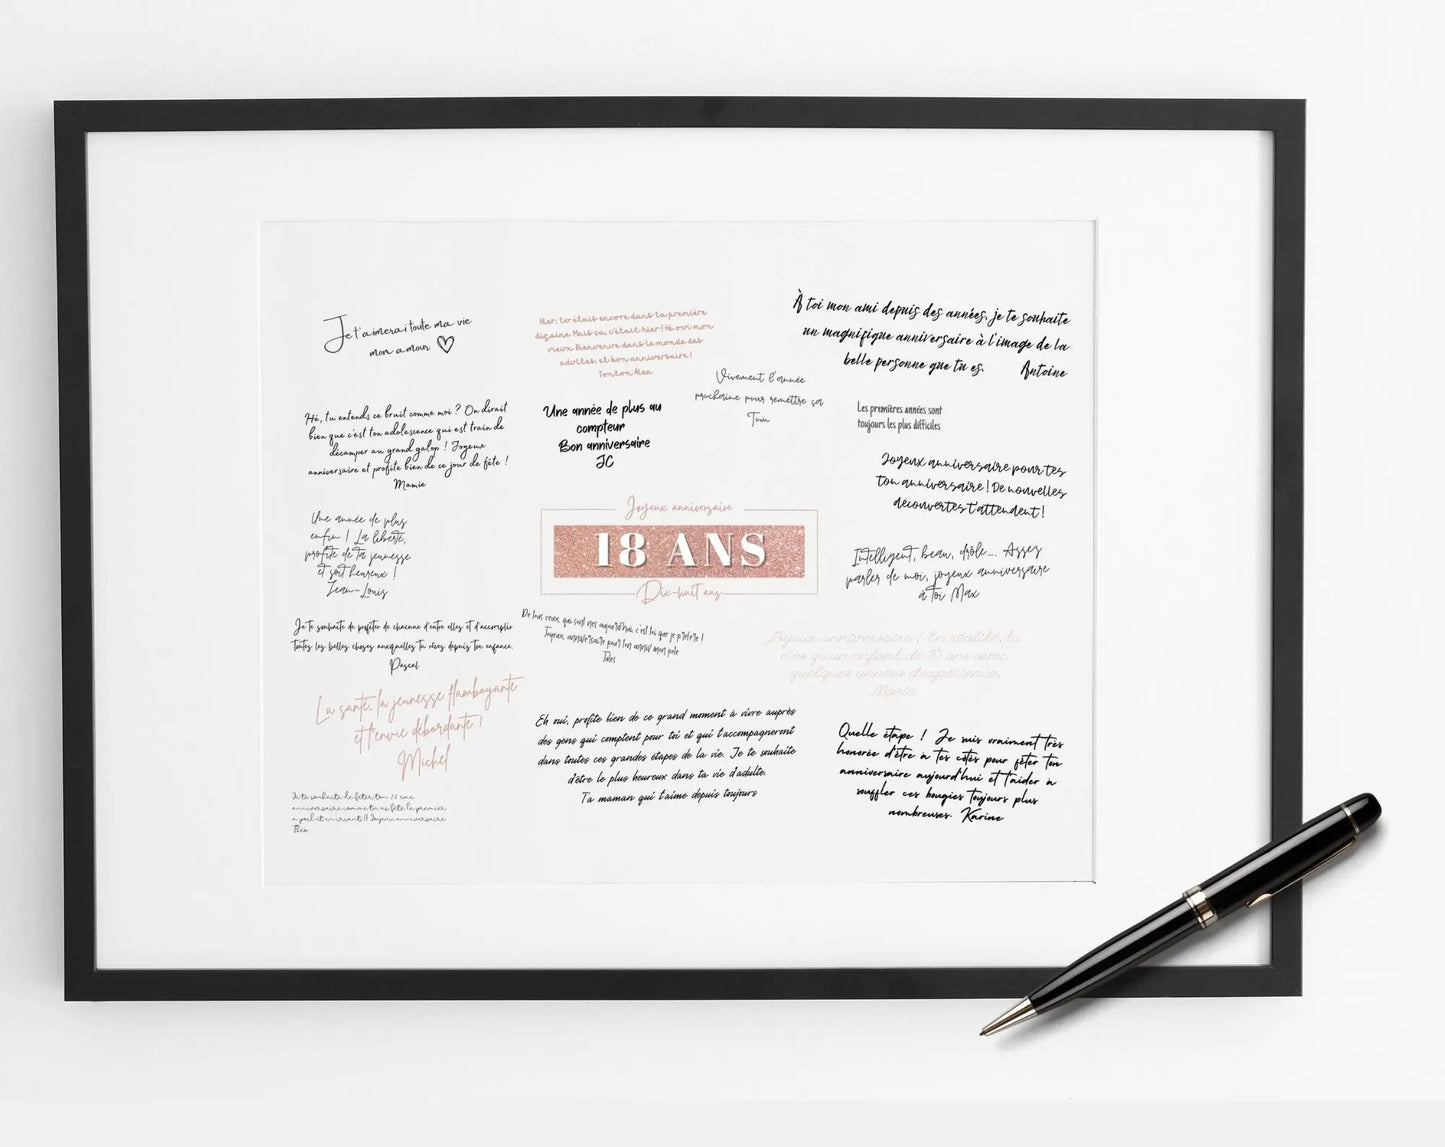 Je t'aimerai toute ma vie
mon amour
Hier, tu étais encore dans ta première
dizaine. Mais ça, c'était hier ! Hé oui mon
vieux. Bienvenue dans le monde des
adultes, et bon anniversaire !
Tonton Max
À toi mon ami depuis des années, je te souhaite
un magnifique anniversaire à l'image de la
belle personne que tu es. Antoine
Vivement l'année
prochaine pour remettre ça
Tom
Hé, tu entends ce bruit comme moi ? On dirait
bien que c'est ton adolescence qui est train de
décamper au grand galop ! Joyeux
anniversaire et profite bien de ce jour de fête !
Mamie
Une année de plus au
compteur
Bon anniversaire
JC
Les premières années sont
toujours les plus difficiles
Joyeux anniversaire pour tes
ton anniversaire ! De nouvelles
découvertes t'attendent !
Une année de plus
enfin ! La liberté,
profite de ta jeunesse
et soit heureux !
Jean-Louis
Joyeux anniversaire
18 ANS
Dix-huit ans
Intelligent, beau, drôle.... Assez
parler de moi, joyeux anniversaire
à toi Max
Je te souhaite de profiter de chacune d'entre elles et d'accomplir
toutes les belles choses auxquelles tu rêves depuis ton enfance.
Pascal
De tous ceux qui sont nés aujourd'hui, c'est toi que je préfère !
Joyeux anniversaire pour ton anniv' mon pote
Jules
Joyeux anniversaire ! En réalité, tu
n'es qu'un enfant de 10 ans avec
quelques années d'expérience.
Marie
La santé, la jeunesse flamboyante
et l'envie débordante !
Michel
Eh oui, profite bien de ce grand moment à vivre auprès
des gens qui comptent pour toi et qui t'accompagneront
dans toutes ces grandes étapes de la vie. Je te souhaite
d'être le plus heureux dans ta vie d'adulte.
Ta maman qui t'aime depuis toujours
Quelle étape ! Je suis vraiment très
honorée d'être à tes côtés pour fêter ton
anniversaire aujourd'hui et t'aider à
souffler ces bougies toujours plus
nombreuses. Karine
Je te souhaite de fêter ton ème
anniversaire comme tu as fêté le premier
à poil et en criant !! Joyeux anniversaire
Théo